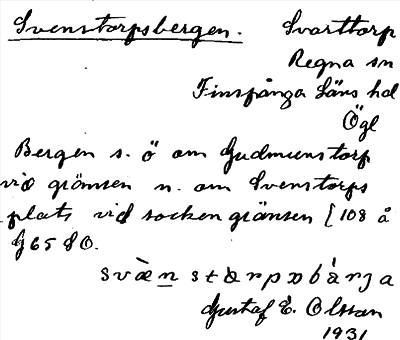 Svenstorpsbergen. Svarttorp
Regna sn
Finspånga läns hd
Ögl
Bergen s. ö om Gudmunstorp
vid gränsen n. om Svenstorps
plats vid sockengränsen [108 å
G 65 SO.
Gustaf E. Olsson
1931